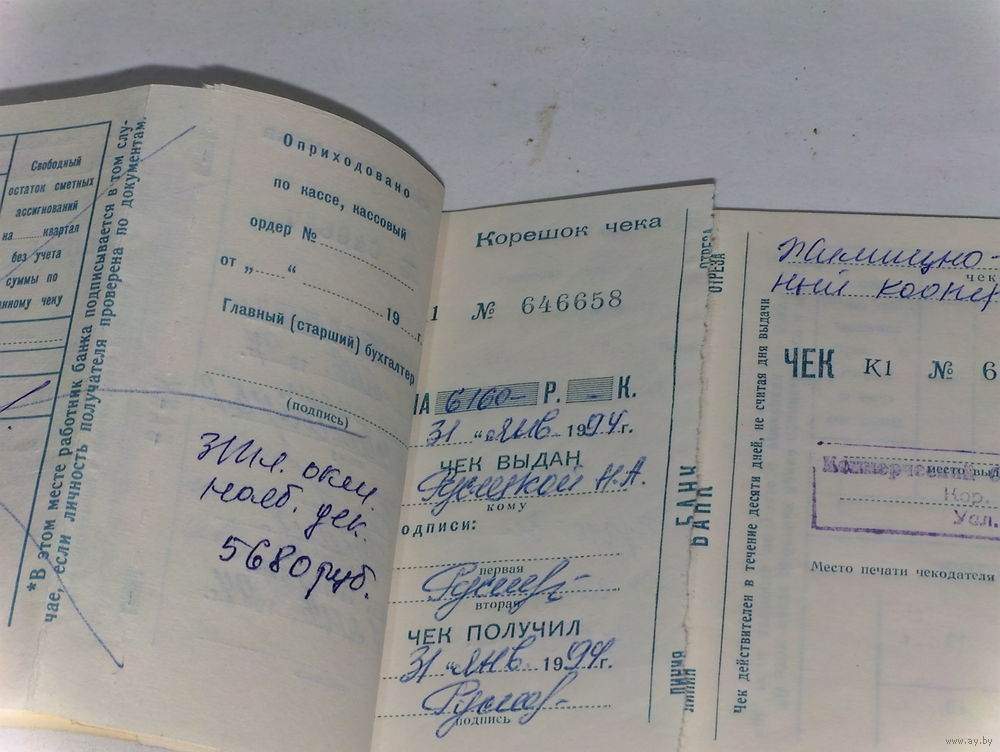 Свободный
остаток сметных
ассигнований
на квартал
без учета
суммы по
данному чеку
*В этом месте работник банка подписывается в том слу-
чае, если личность получателя проверена по документам.
Оприходовано
по кассе, кассовый
ордер №
от „ “
19 г.
Главный (старший) бухгалтер
(подпись)
окт.
нояб. дек.
5680 руб.
Корешок чека
1 № 646658
НА 6160- Р. - К.
31 “ янв 1994 г.
ЧЕК ВЫДАН
Н.А.
кому
одписи:
первая
вторая
ЧЕК ПОЛУЧИЛ
31 “ янв 1994 г.
подпись
ОТРЕЗА
ОТРЕЗА
БАНК
БАНК
ЛИНИЯ
ЛИНИЯ
Чек действителен в течение десяти дней, не считая дня выдачи
Жилищно-
чек
ный коопер
ЧЕК К1 № 6
место выд
Коммерческий
Кор.
Усл.
Место печати чекодателя
www.ay.by